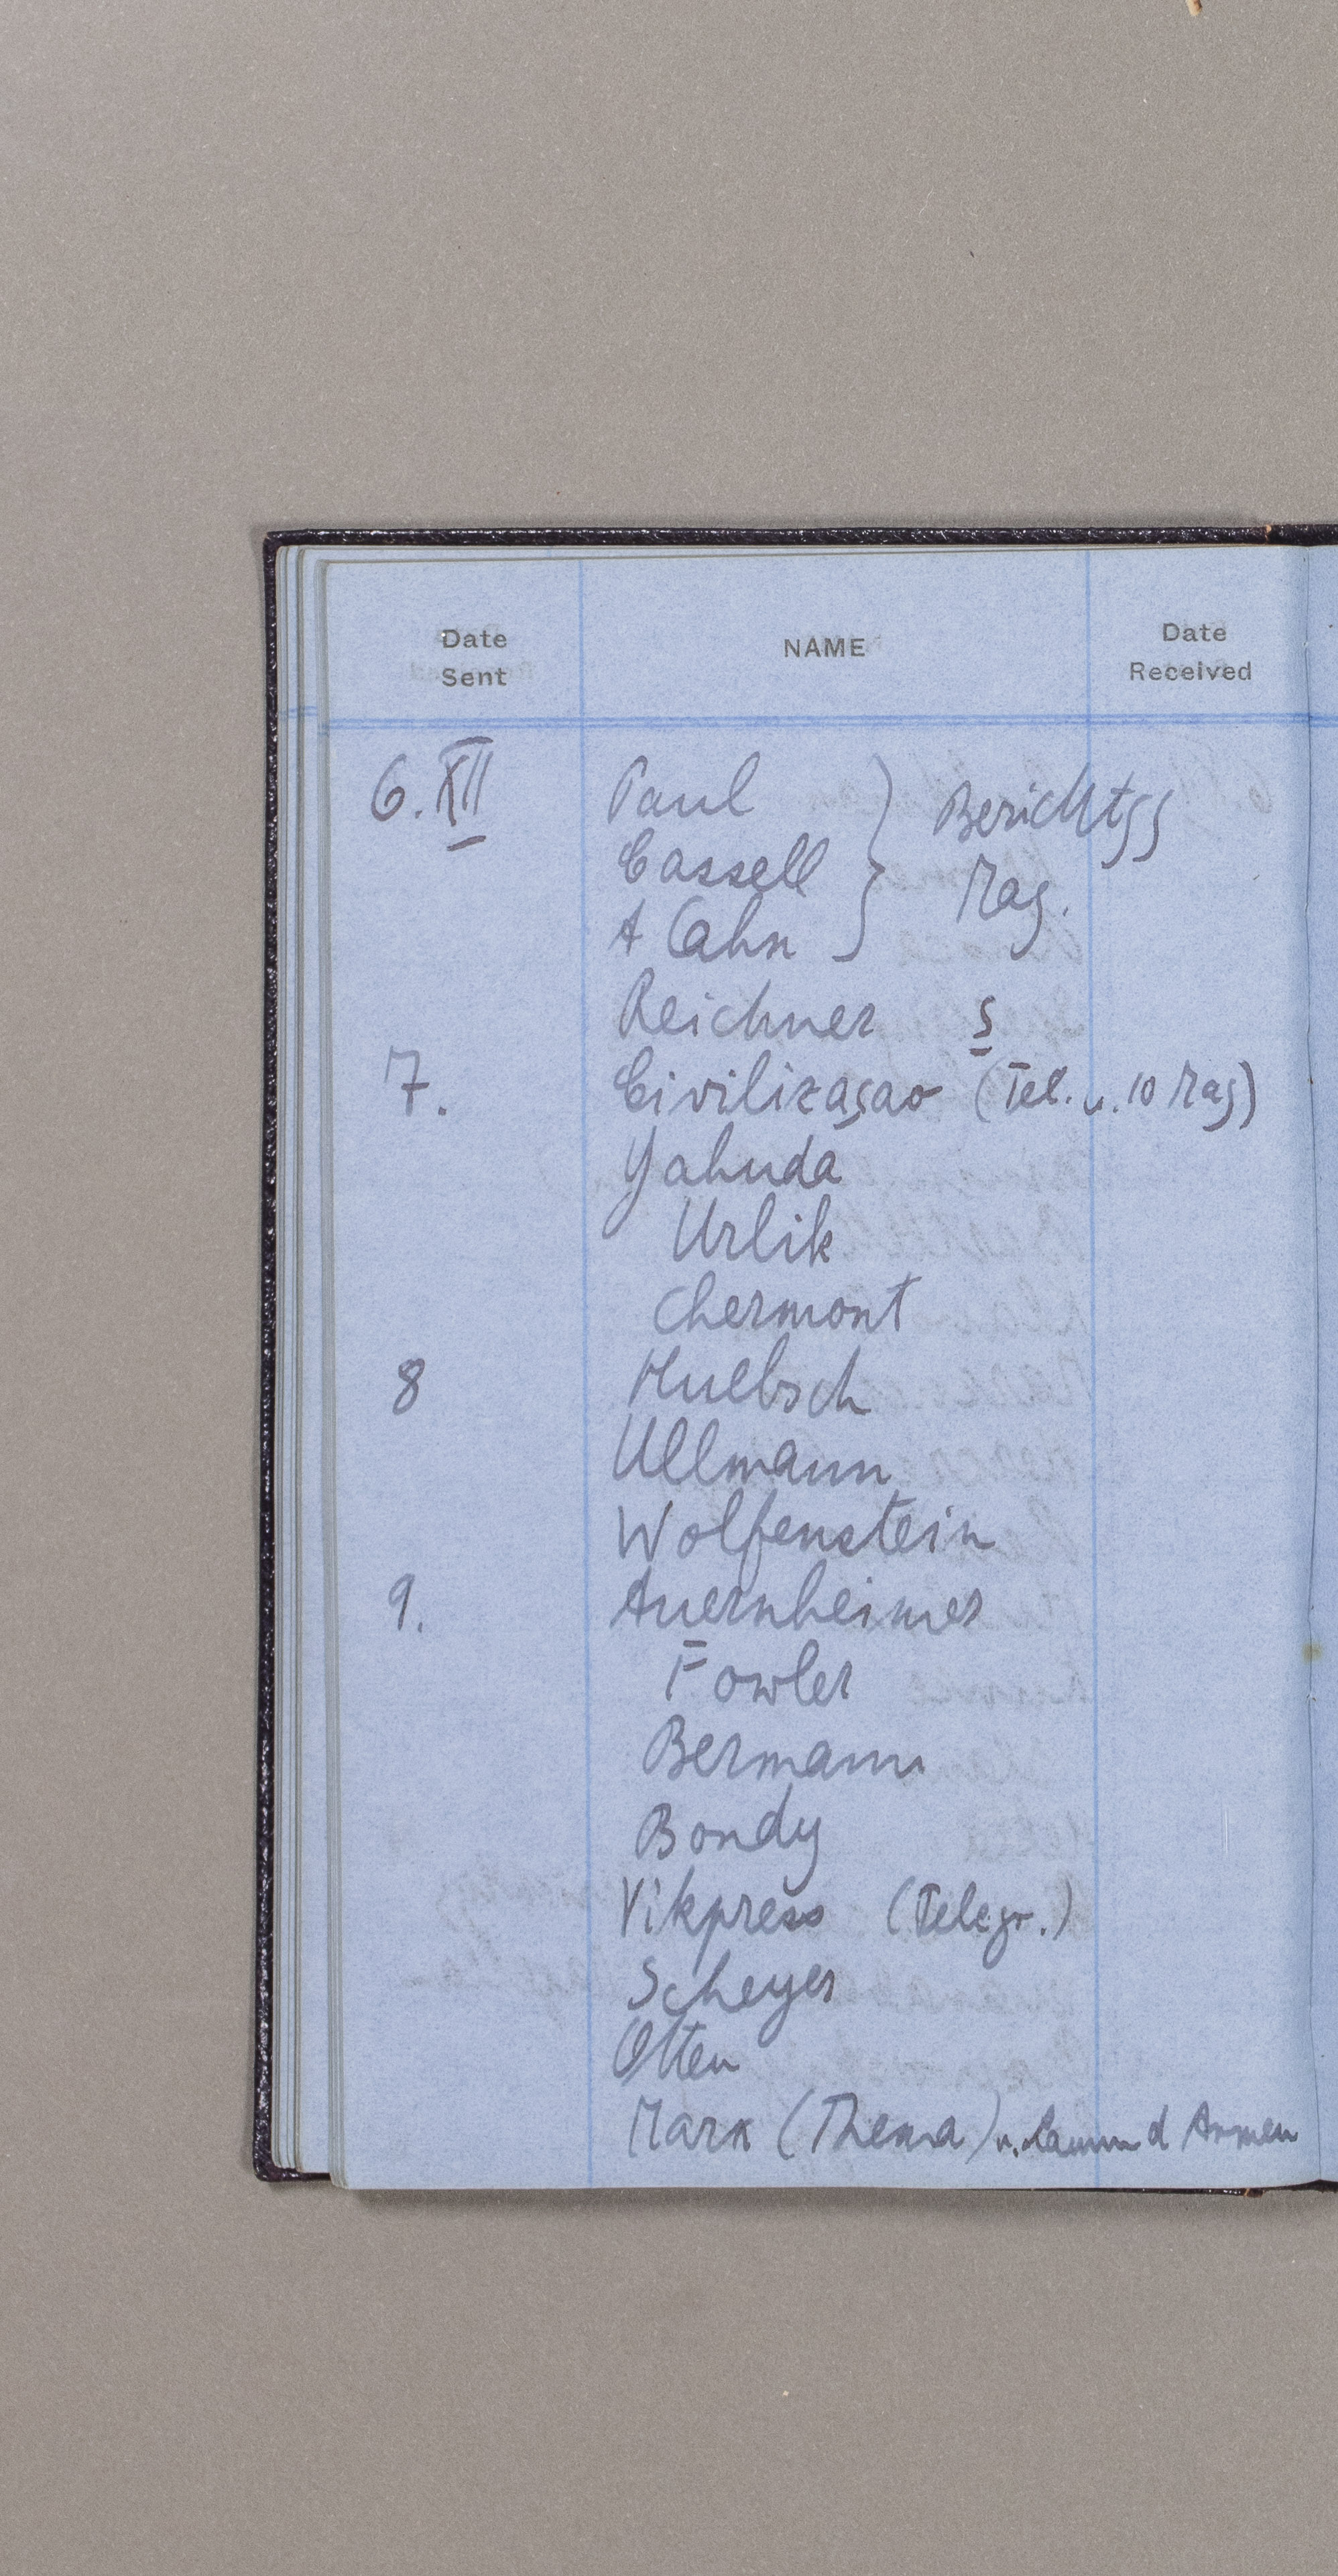 Date Sent NAME Date Received
6. XII Paul
Cassell
A Cahn
Reichner S
7. Civilizaçao (Tel. u. 10 Mag)
Yahuda
Urlik
Chermont
8 Huebsch
Ullmann
Wolfenstein
9. Auernheimer
Fowler
Bermann
Bondy
Vikpress (Telegr.)
Scheyer
Otten
Marx (Thema) u. d Armen